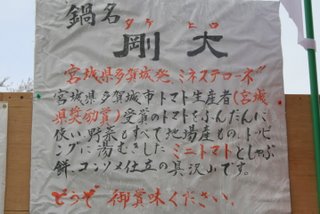 鍋名
タケ ヒロ
剛大
宮城県多賀城発 ミネストローネ"
宮城県多賀城市トマト生産者(宮城
県奨励賞)受賞のトマトをふんだんに
使い野菜もすべて地場産もの。トッピ
ングに湯むきしたミニトマトとしゃぶ
餅、コンソメ仕立の具沢山です。
どうぞ 御賞味ください。